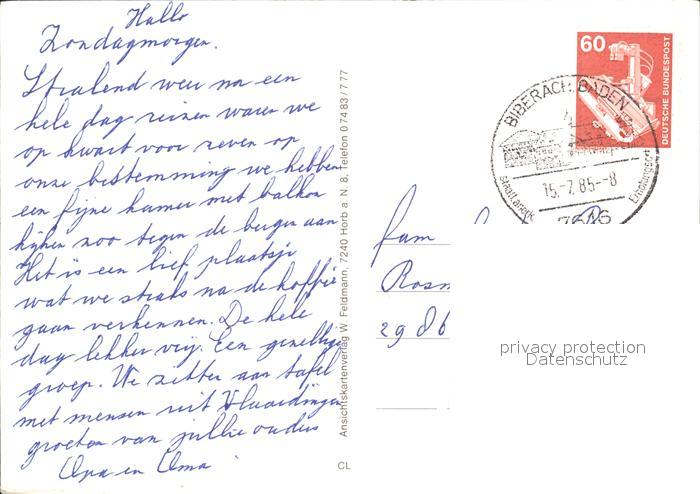 Hallo
Zondagmorgen.
Stralend weer na een
hele dag reizen waren we
op kwart voor zeven op
onze bestemming we hebben
een fijne kamer met balkon
kijken zoo tegen de bergen aan
Het is een lief plaatsje
wat we straks na de koffie
gaan verkennen. De hele
dag lekker vrij. Een gezellige
groep. We zitten aan tafel
met mensen uit Vlaardingen
groeten van jullie ouders
Opa en Oma
Ansichtskartenverlag W. Feldmann, 7240 Horb a. N. 8, Telefon 0 74 83 / 7 77
CL
60
DEUTSCHE BUNDESPOST
BIBERACH, BADEN
15.-7.85--8
Staatl. anerk. Erholungsort
7616
fam
2986
privacy protection
Datenschutz